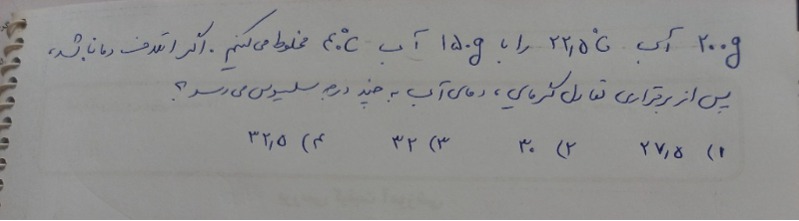 ۲۰۰g آب ۲۲٫۵°C را با ۱۵۰g آب ۴۰°C مخلوط می‌کنیم. اگر اتلاف دما نباشد،
پس از برقراری تعادل گرمایی، دمای آب به چند درجه سلسیوس می‌رسد؟
۱) ۲۷٫۵ ۲) ۳۰ ۳) ۳۲ ۴) ۳۲٫۵